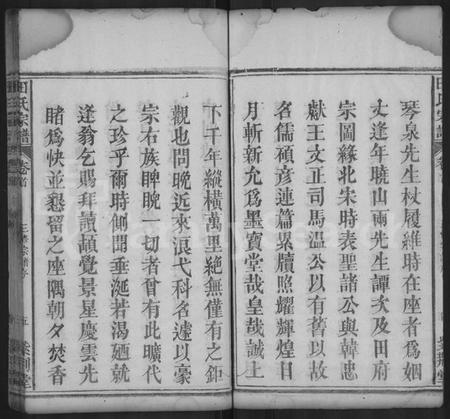 琴泉先生杖履維時在座者爲姻
丈逢年曉山兩先生譚次及田府
宗圖緣北宋時表聖諸公與韓忠
獻王文正司馬溫公以有舊以故
名儒碩彥連篇累牘照耀輝煌目
月斬新允爲墨寶堂哉皇哉誠上
下千年縱橫萬里絕無僅有之鉅
觀也問晚近來浪弋科名遽以豪
宗右族睥睨一切者曾有此曠代
之珍乎爾時側聞垂涎若渴廼就
逢翁乞賜拜讀頓覺景星慶雲先
睹爲快並懇留之座隅朝夕焚香
田氏宗譜
卷首
五
紫荆堂